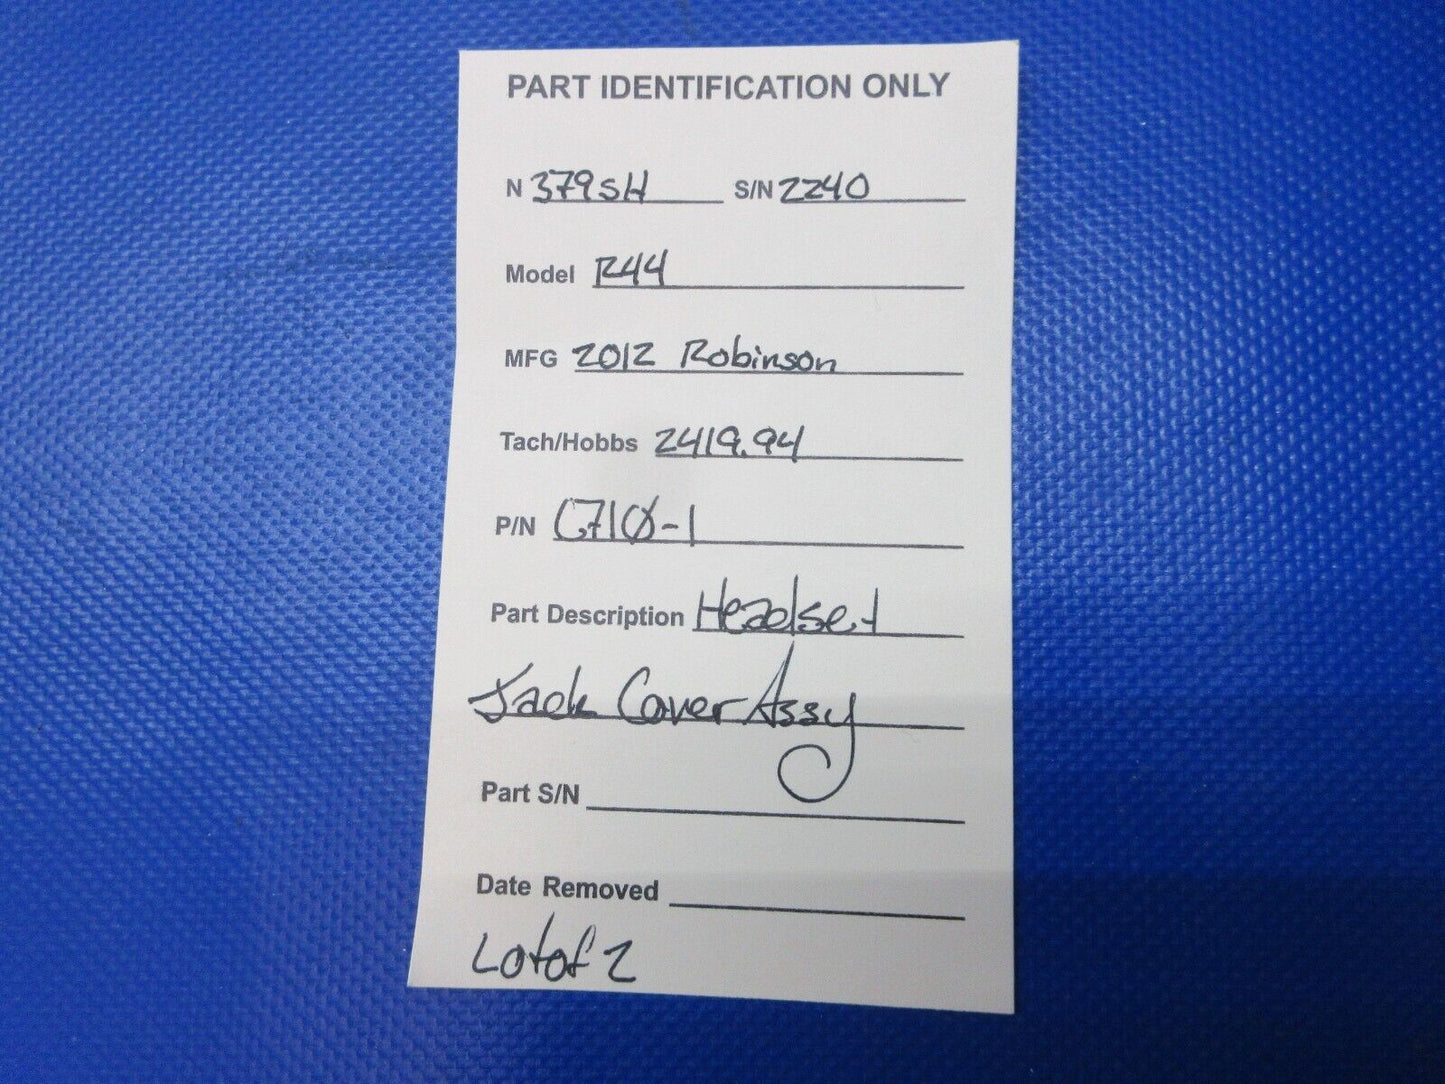 PART IDENTIFICATION ONLY
N 379SH S/N 2240
Model R44
MFG 2012 Robinson
Tach/Hobbs 2419.94
P/N C710-1
Part Description Headset
Jack Cover Assy
Part S/N
Date Removed
Lot of 2